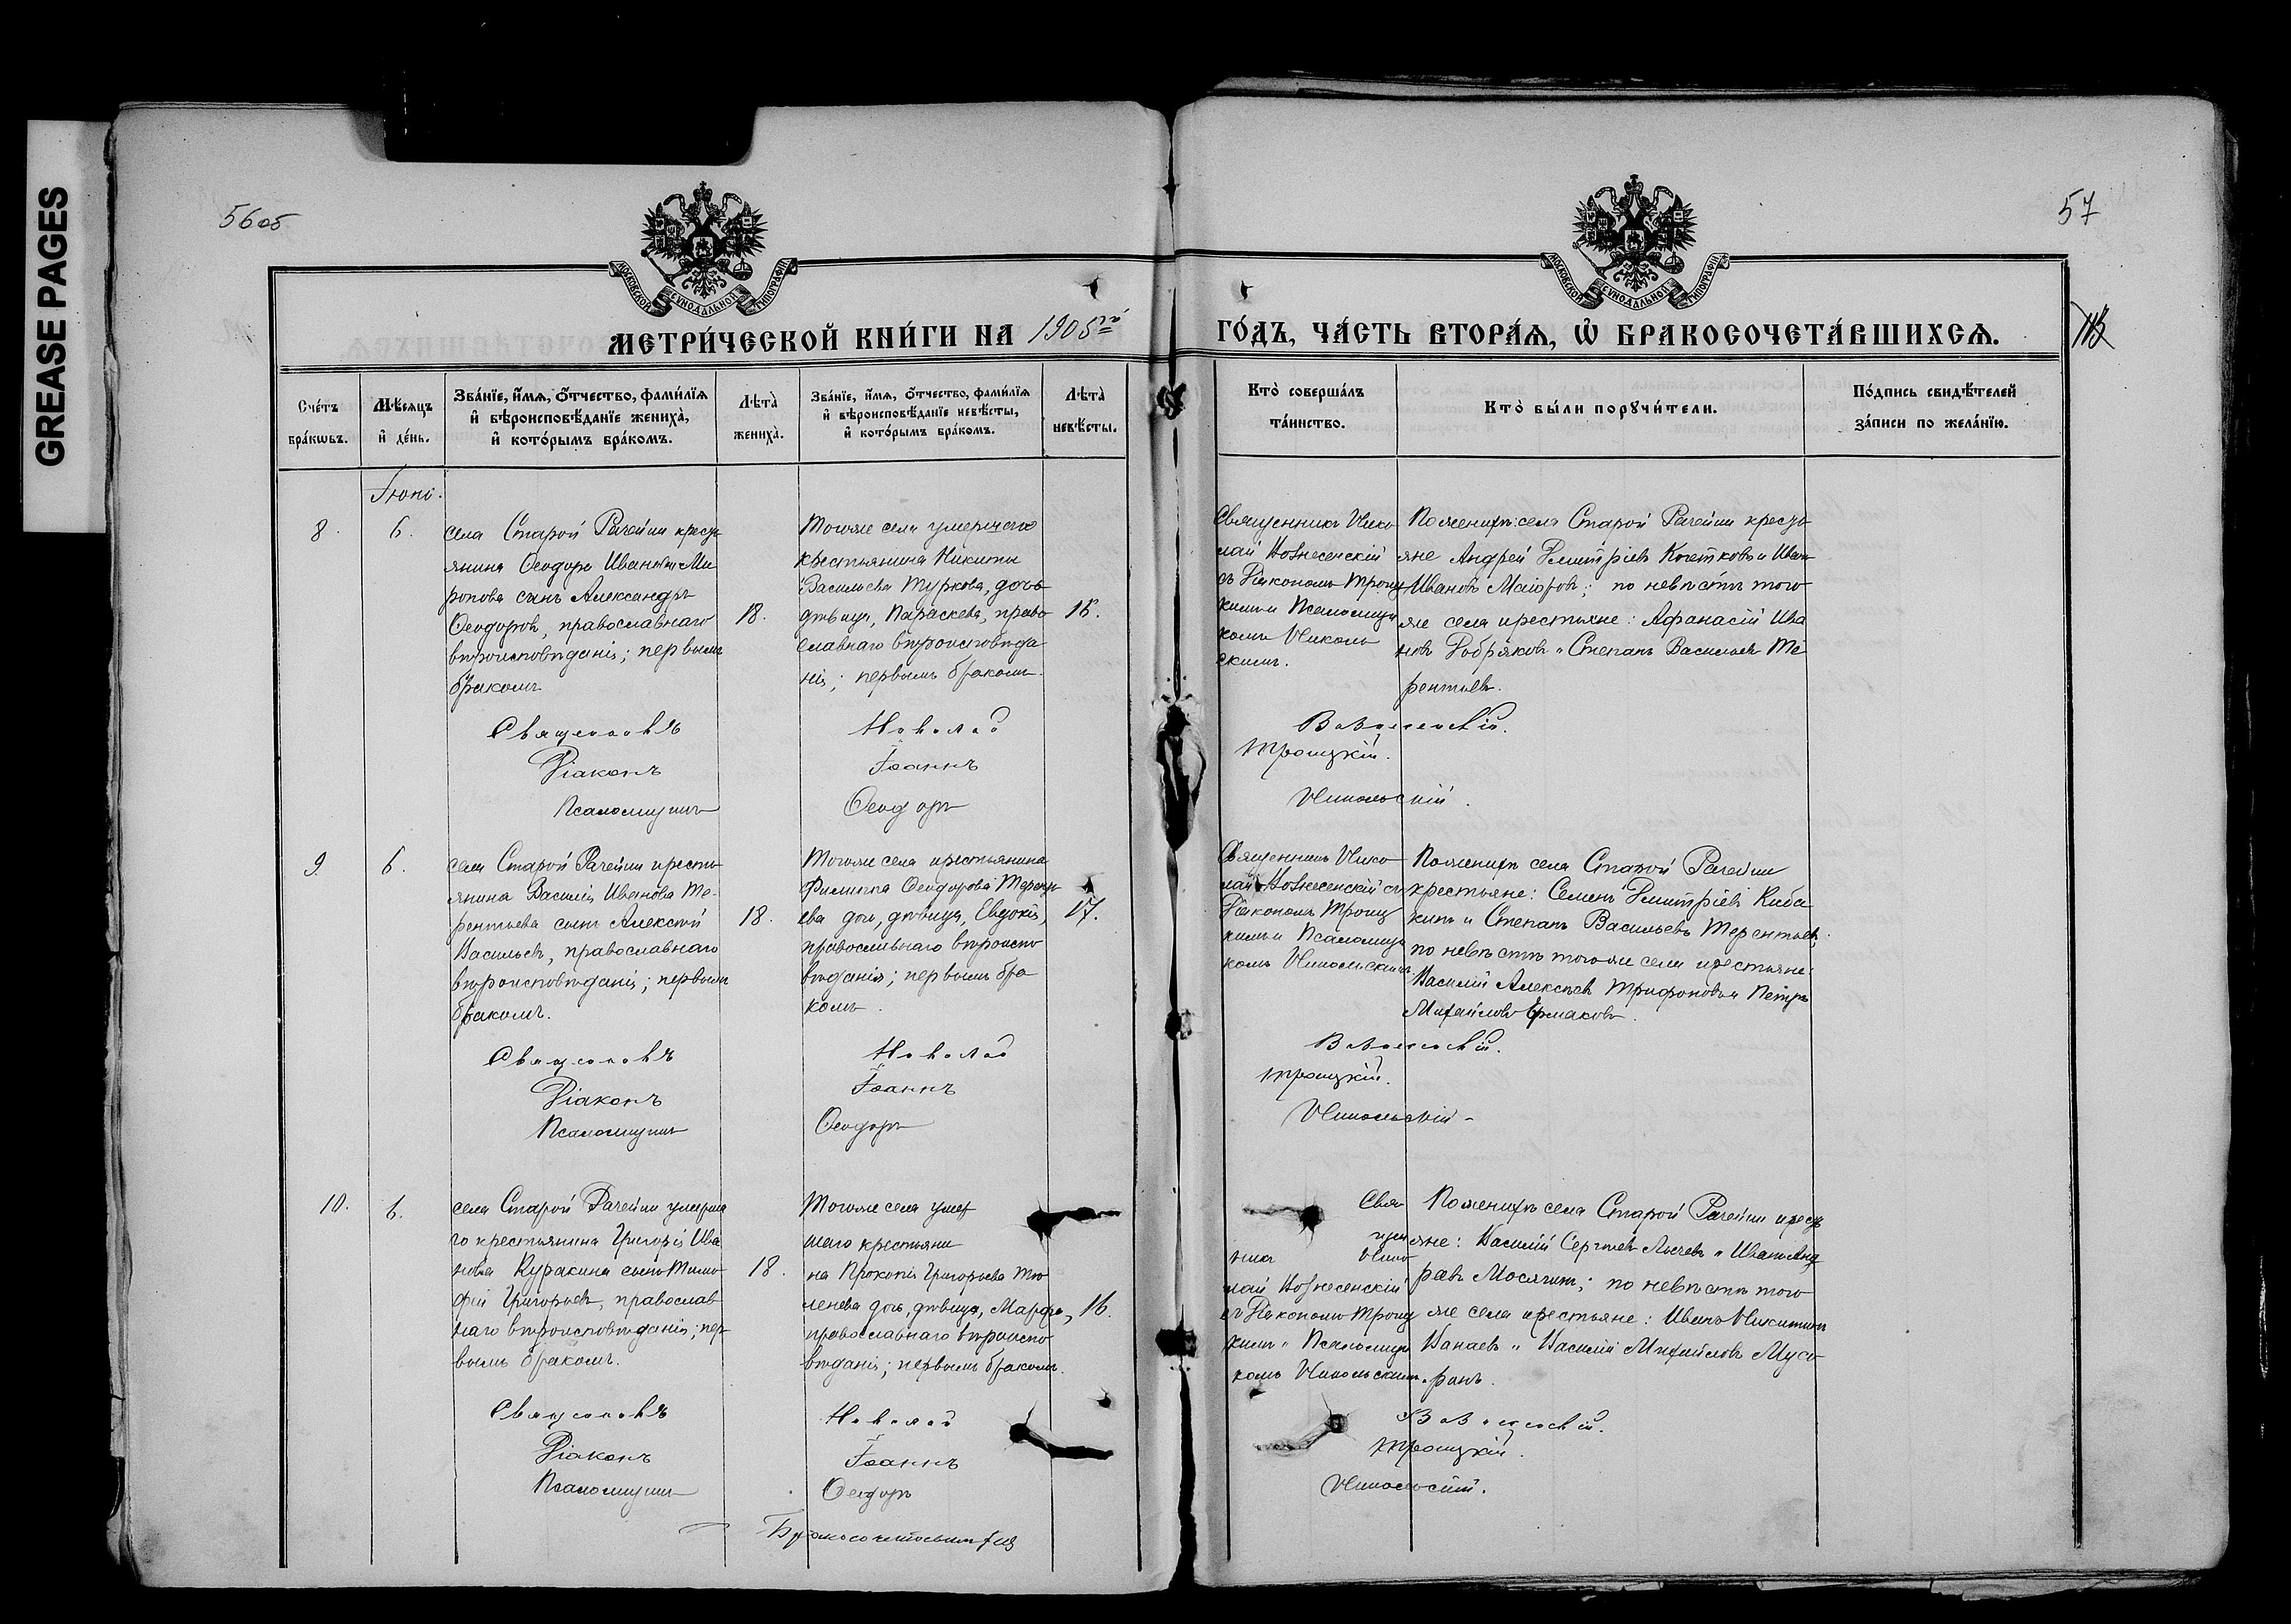 GREASE PAGES
56об
57
МОСКОВСКОЙ СѴНОДАЛЬНОЙ ТИПОГРАФІИ
МОСКОВСКОЙ СѴНОДАЛЬНОЙ ТИПОГРАФІИ
МЕТРИ́ЧЕСКОЙ КНИ́ГИ НА 1905го
ГО́ДЪ, ЧА́СТЬ ВТОРА́Ѧ, Ѽ БРАКОСОЧЕТА́ВШИХСѦ.
Сче́тъ бра́кѡвъ.
Мѣсяцъ и҆ де́нь.
Зва́нїе, и҆́мѧ, ѻ҆́тчество, фами́лїѧ
и҆ вѣроисповѣ́данїе жениха̀,
и҆ кото́рымъ бра́комъ.
Лѣта̀ жениха̀.
Зва́нїе, и҆́мѧ, ѻ҆́тчество, фами́лїѧ
и҆ вѣроисповѣ́данїе невѣ́сты,
и҆ кото́рымъ бра́комъ.
Лѣта̀ невѣ́сты.
Кто̀ соверша́лъ та́инство.
Кто̀ бы́ли порꙋчи́тели.
По́дпись свидѣ́телей за́писи по жела́нїю.
Іюнь.
8.
6.
села Старой Рачейки кресть
янина Ѳеодора Иванова Ми
ронова сынъ Александръ
Ѳеодоровъ, православнаго
вѣроисповѣданія; первымъ
бракомъ.
18.
Тогоже села умершаго
крестьянина Никиты
Васильева Туркова, дочь
дѣвица, Параскева, право
славнаго вѣроисповѣда
нія; первымъ бракомъ.
18.
Священникъ Нико
лай Вознесенскій
съ Діакономъ Троиц
кимъ и Псаломщи
комъ Николь
скимъ.
По женихѣ: села Старой Рачейки кресть
яне Андрей Димитріевъ Кочетковъ и Иванъ
Ивановъ Маіоровъ; по невѣстѣ того
же села крестьяне: Афанасій Ива
новъ Добряковъ и Степанъ Васильевъ Те
рентьевъ.
Священникъ Николай Вознесенскій.
Діаконъ Іоаннъ Троицкій.
Псаломщикъ Ѳеодоръ Никольскій.
9.
6.
села Старой Рачейки кресть
янина Василія Иванова Те-
рентьева сынъ Алексѣй
Васильевъ, православнаго
вѣроисповѣданія; первымъ
бракомъ.
18.
Тогоже села крестьянина
Филиппа Ѳеодорова Терень
ева дочь, дѣвица, Евдокія,
православнаго вѣроиспо
вѣданія; первымъ бра
комъ.
17.
Священникъ Нико
лай Вознесенскій съ
Діакономъ Троиц
кимъ и Псаломщи
комъ Никольскимъ
По женихѣ села Старой Рачейки
крестьяне: Семенъ Димитріевъ Киба
кинъ и Степанъ Васильевъ Терентьевъ,
по невѣстѣ тогоже села крестьяне:
Василій Алексѣевъ Трифоновъ и Петръ
Михайловъ Ермаковъ.
Священникъ Николай Вознесенскій.
Діаконъ Іоаннъ Троицкій.
Псаломщикъ Ѳеодоръ Никольскій
10.
6.
села Старой Рачейки умерша
го крестьянина Григорія Ива
нова Куракина сынъ Тимо
фей Григорьевъ, православ
наго вѣроисповѣданія; пер
вымъ бракомъ.
18.
Тогоже села умер
шаго крестьяни
на Прокопія Григорьева Тю
ленева дочь, дѣвица, Марфа,
православнаго вѣроиспо
вѣданія; первымъ бракомъ.
16.
Свя
щен
никъ Нико
лай Вознесенскій
съ Діакономъ Троиц
кимъ и Псаломщи
комъ Никольскимъ.
По женихѣ села Старой Рачейки кресть
яне: Василій Сергѣевъ Лычевъ и Иванъ Анд
реевъ Мосягинъ; по невѣстѣ того
же села крестьяне: Иванъ Никитинъ
Канаевъ и Василій Михайловъ Мусо
ринъ.
Священникъ Николай Вознесенскій.
Діаконъ Іоаннъ Троицкій.
Псаломщикъ Ѳеодоръ Никольскій.
Бракосочетавшихся